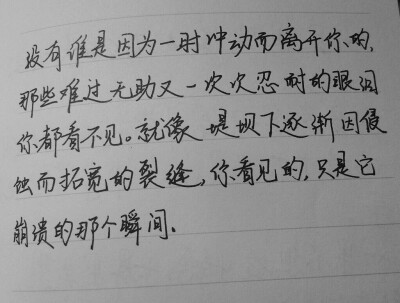 没有谁是因为一时冲动而离开你的,
那些难过无助又一次次忍耐的眼泪
你都看不见。就像堤坝下逐渐因侵
蚀而拓宽的裂缝,你看见的,只是它
崩溃的那个瞬间.